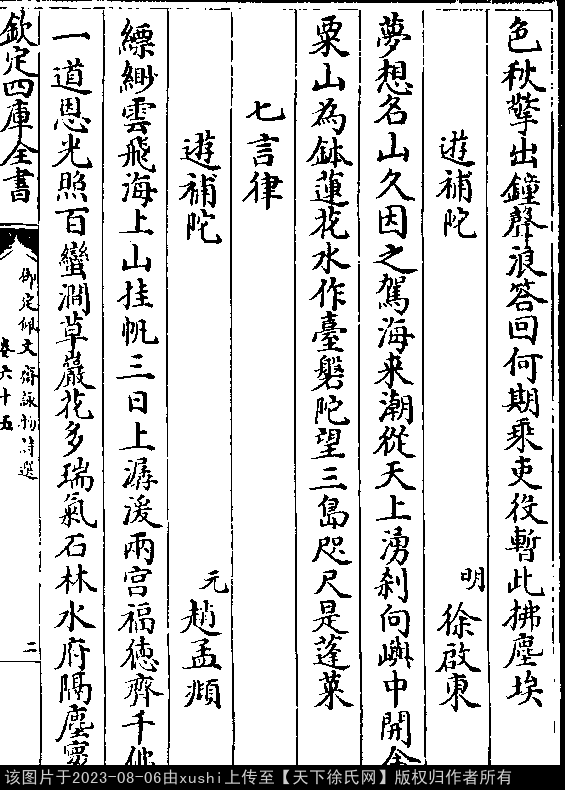 色秋擎出鐘聲浪答回何期乘吏役暫此拂塵埃
遊補陀
明 徐啟東
夢想名山久因之駕海来潮從天上湧刹向嶼中開金
粟山為鉢蓮花水作臺磐陀望三島咫尺是蓬萊
七言律
遊補陀
元 趙孟頫
縹緲雲飛海上山挂帆三日上潺湲兩宫福徳齊千佛
一道恩光照百蠻澗草巖花多瑞氣石林水府隔塵寰
欽定四庫全書
御定佩文齋詠物詩選
卷六十五
二
该图片于2023-08-06由xushi上传至【天下徐氏网】版权归作者所有